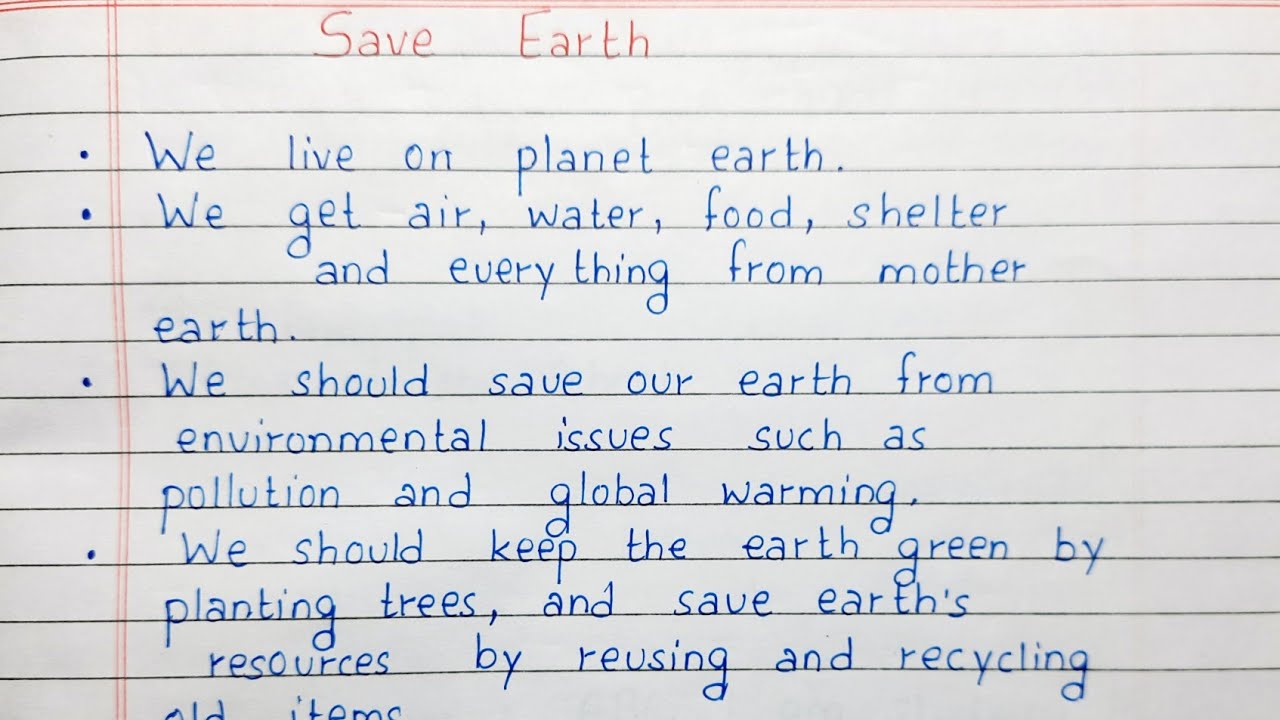 Save Earth
• We live on planet earth.
• We get air, water, food, shelter
and every thing from mother
earth.
• We should save our earth from
environmental issues such as
pollution and global warming.
• We should keep the earth green by
planting trees, and save earth's
resources by reusing and recycling
old items